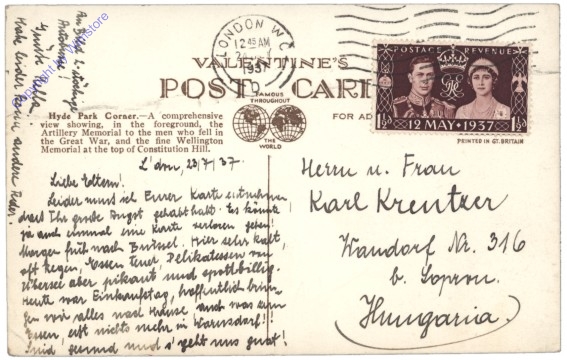 LONDON W.C.
12 45 AM
1937
VALENTINE'S
POST CARD
FAMOUS
THROUGHOUT
THE
WORLD
FOR AD
POSTAGE REVENUE
1½D 1½D
12 MAY • 1937
PRINTED IN GT. BRITAIN
Hyde Park Corner.—A comprehensive
view showing, in the foreground, the
Artillery Memorial to the men who fell in
the Great War, and the fine Wellington
Memorial at the top of Constitution Hill.
L'don, 23/7/37.
Liebe Eltern!
Leider muss ich Eurer Karte entnehmen,
dass Ihr große Angst gehabt habt. Es könnte
ja auch einmal eine Karte verloren gehen!
Morgen früh nach Brüssel. Hier sehr kalt,
oft Regen, Essen teuer, Delikatessen von
Übersee aber pikant und spottbillig.
Heute war Einkaufstag, hoffentlich brin-
gen wir alles nach Hause, auch was zum
Essen, erst nichts mehr in Warnsdorf!!
Sind gesund und s'geht uns gut!
Herrn u. Frau
Karl Kreutzer
Wandorf Nr. 316
b. Sopron.
Hungaria.